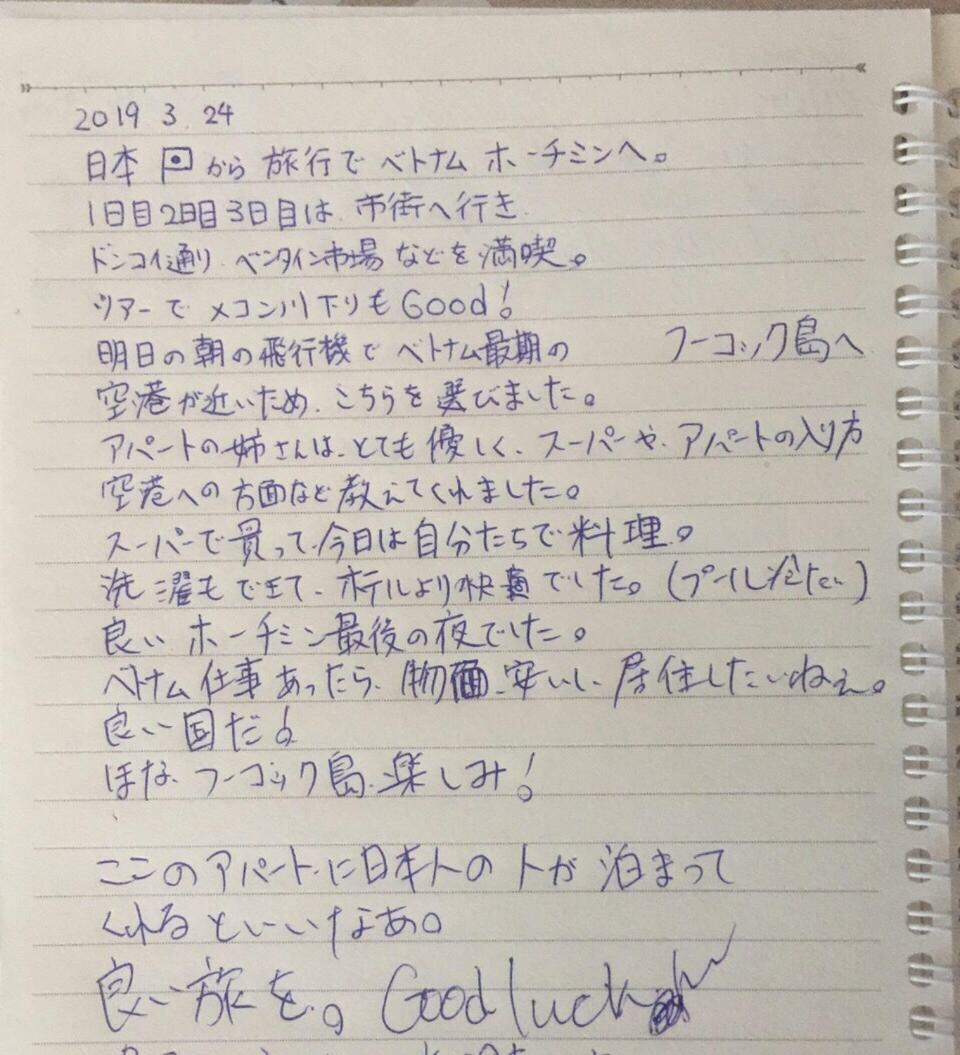 2019 3. 24
日本 から 旅行で ベトナム ホーチミンへ。
1日目2日目3日目は、市街へ行き
ドンコイ通り、ベンタイン市場 などを 満喫。
ツアーで メコン川下りも Good!
明日の朝の飛行機で ベトナム最期の フーコック島へ
空港が近いため、こちらを選びました。
アパートの姉さんは、とても優しく、スーパーや、アパートの入り方
空港への方面など教えてくれました。
スーパーで買って、今日は自分たちで料理。
洗濯もできて、ホテルより快適でした。(プール冷たい)
良い ホーチミン最後の夜でした。
ベトナム仕事あったら、物価 安いし、居住したいねぇ。
良い国だ!
ほな、フーコック島、楽しみ!
ここのアパートに日本人の人が 泊まって
くれるといいなあ。
良い旅を。Good luck